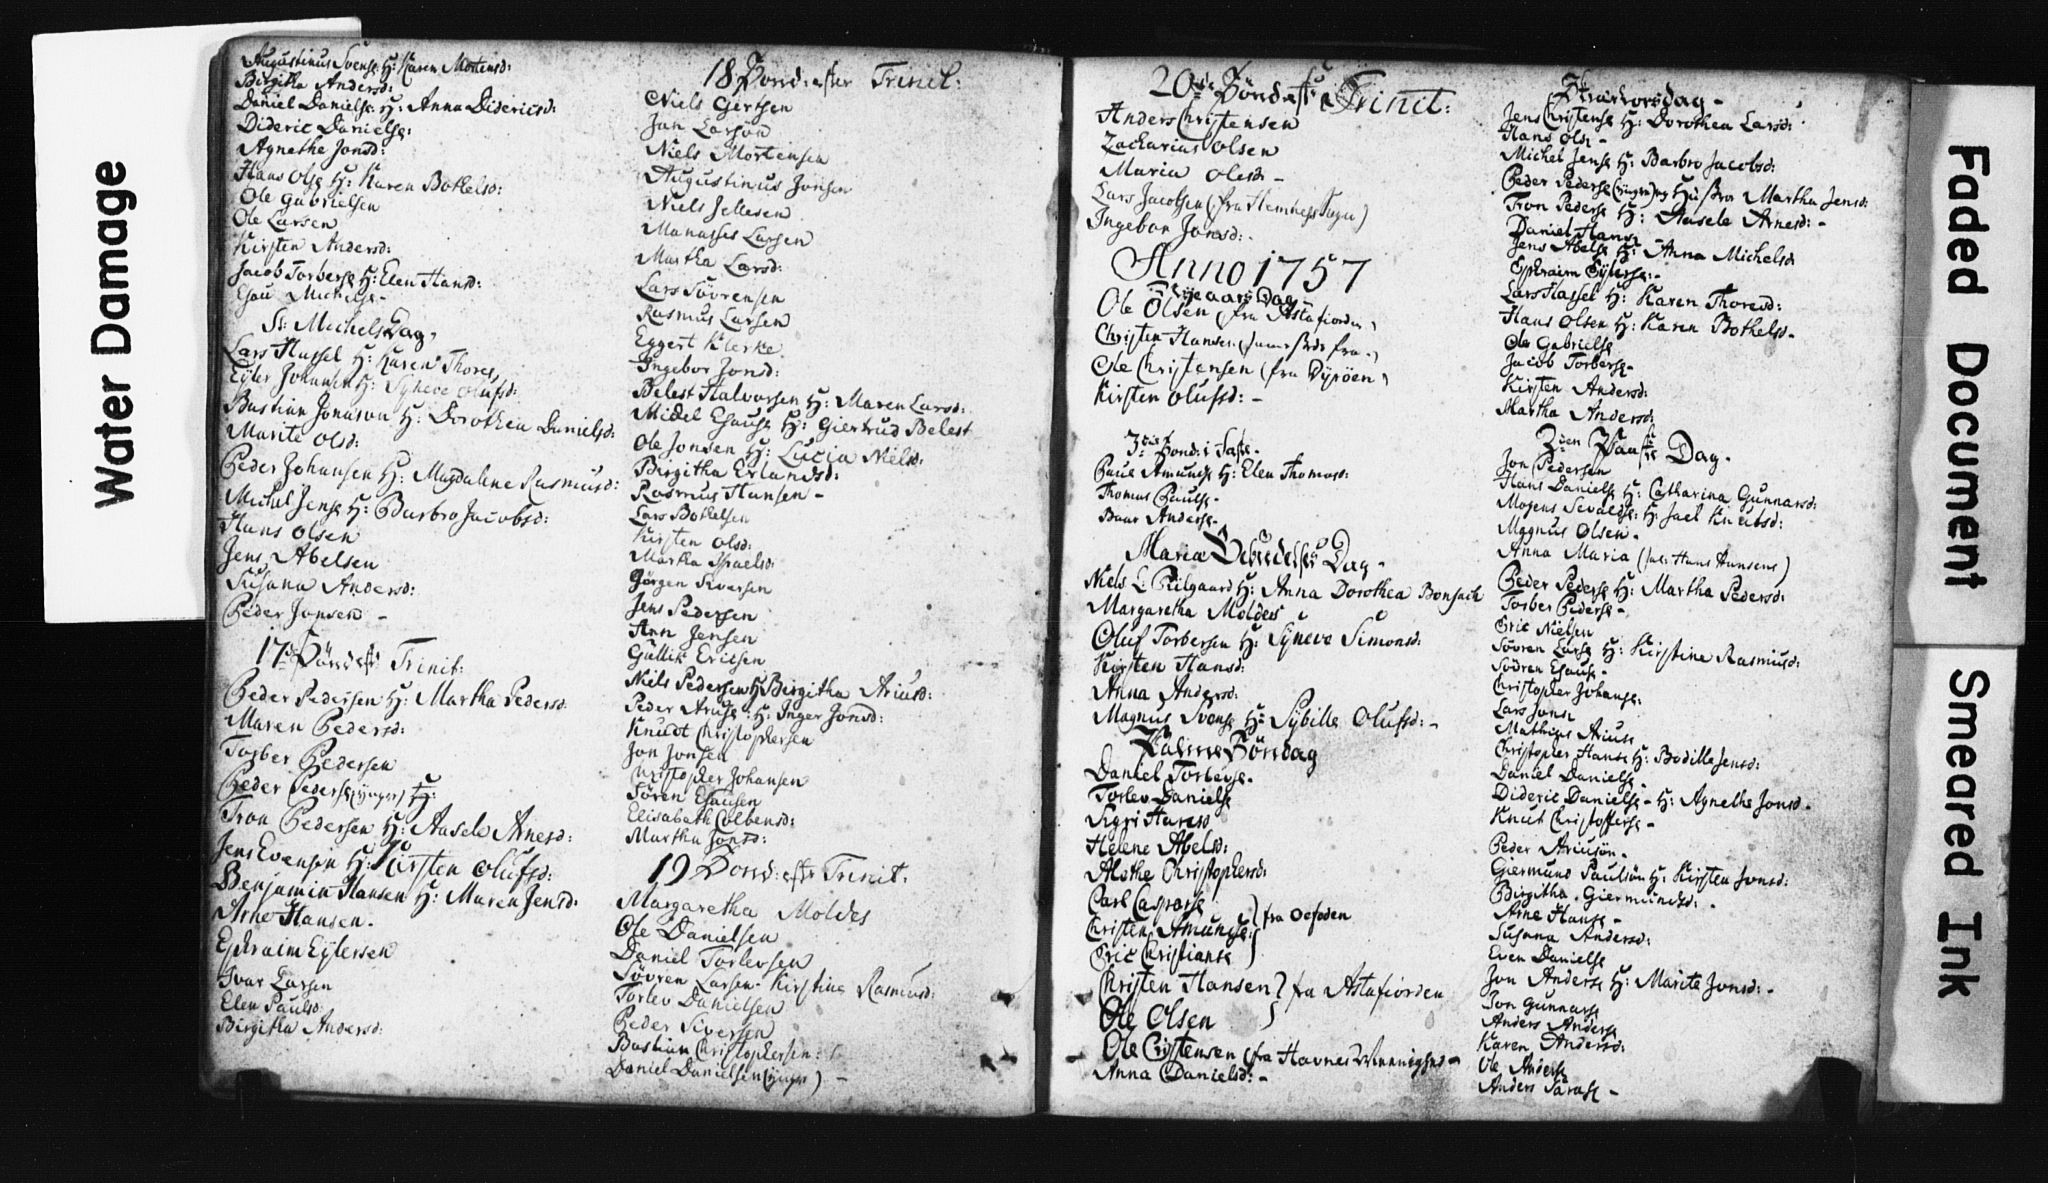 Water Damage
Augustinus Svens: H: Karen Mortensd:
Birgitha Andersd:
Daniel Daniels: H: Anna Didericsd:
Dideric Daniels:
Agnethe Jonsd:
Hans Ols: H: Karen Bothelsd:
Ole Gabrielsen
Ole Larsen
Kirsten Andersd:
Jacob Torbers: H: Elen Hansd:
Esau Michels: -
St: Michels Dag,
Lars Hassel H: Karen Thores,
Eyler Johansen H: Syneve Olufsd:
Bastian Jonason H: Dorothea Danielsd:
Marite Olsd:
Peder Johansen H: Magdalene Rasmusd:
Michel Jens: H: Barbro Jacobsd:
Hans Olsen
Jens Abelsen
Susana Andersd:
Peder Jonsen -
17de Sönd: eft: Trinit:
Peder Pedersen H: Martha Pedersd:
Maren Pedersd:
Torber Pedersen
Peder Peders: (ynger) H:
Tron Pedersen H: Aasele Arnesd:
Jens Evensen H: Kirsten Olufsd:
Benjamin Hansen H: Maren Jensd:
Arne Hansen.
Ephraim Eylersen
Ivar Larsen
Elen Paulsd:
Birgitha Andersd:
18 Sönd: efter Trinit:
Niels Gertsen
Jan Larsön
Niels Mortensen
Augustinus Jonsen
Niels Jellesen
Manasses Larsen
Martha Larsd:
Lars Sövrensen
Rasmus Larsen
Eggert Klerke
Ingebor Jonsd:
Belest Halvorsen H: Maren Larsd:
Michel Esaus: H: Giertrud Belest
Ole Jonsen H: Lucia Nielsd:
Birgitha Erlandsd:
Rasmus Hansen -
Lars Bothelsen
Kirsten Olsd:
Martha Israelsd:
Jörgen Siversen
Jens Pedersen
Ann Jensen
Gullik Ericsen
Niels Pedersen H: Birgitha Ariusd:
Peder Arius: H: Inger Jonsd:
Knudt Christophersen
Jon Jonsen
Christopher Johansen
Sören Esausen
Elisabeth Colbensd:
Martha Jonsd:
19 Sönd: eft: Trinit.
Margaretha Moldes
Ole Danielsen
Daniel Torlevsen
Sövren Larsen - Kirstine Rasmusd:
Torlev Danielsen
Peder Siversen
Bastian Christophersen:
Daniel Danielsen (ynger) -
20de Sönd: eft: Trinit:
Anders Christensen
Zacharias Olsen
Maria Olsd: -
Lars Jacobsen (fra Hemnes Sogn)
Ingebor Jonsd: -
Anno 1757
Nye aars Dag
Ole Olsen (fra Astafiorden)
Christen Hansen
Ole Christensen (fra Dyröen)
Kirsten Olufsd: -
3die Sönd: i Faste.
Paul Amunds: H: Elen Thomasd:
Thomas Pauls: -
Baar Anders: -
Mariæ Bebudelses Dag -
Niels L: Pilgaard H: Anna Dorothea Bonsach
Margaretha Moldes
Oluf Torbersen H: Syneve Simonsd:
Kirsten Hansd:
Anna Andersd:
Magnus Svens: H: Sybille Olufsd: -
Palme Söndag
Daniel Torlevs: -
Torlev Daniels:
Sigri Hansd:
Helene Abelsd:
Alethe Christophersd:
Carl Caspers:
Christen Amunds: } fra Ocfoden
Eric Christians:
Christen Hansen } fra Astafiorden
Ole Olsen
Ole Christensen (fra Havnes
Anna Danielsd: -
Skiærtorsdag -
Jens Christens: H: Dorothea Larsd:
Hans Ols: -
Michel Jens: H: Barbro Jacobsd:
Peder Peders: (ynger) og Hustroe Martha Jensd:
Tron Peders: H: Aasele Arnesd: -
Daniel Hans:
Jens Abels: H: Anna Michelsd:
Ephraim Eylers: -
Lars Hassel H: Karen Thoresd:
Hans Olsen H: Karen Bothelsd: -
Ole Gabriels:
Jacob Torbers: -
Kirsten Andersd:
Martha Andersd:
2den Paaske Dag -
Jon Pedersen
Hans Daniels: H: Catharina Gunnarsd:
Mogens Sevalds: H: Jael Knudsd:
Magnus Olsen -
Anna Maria (sal: Hans Hansens)
Peder Peders: H: Martha Pedersd:
Torber Peders: -
Eric Nielsen
Sövren Lars: H: Kirstine Rasmusd:
Sövren Esaus: -
Christopher Johans:
Lars Jons:
Mathias Arius:
Christopher Hans: H: Bodille Jensd:
Daniel Daniels:
Dideric Daniels: - H: Agnethe Jonsd: -
Knut Christoffers: -
Peder Ariusön -
Giermund Paulsön H: Kirsten Jonsd:
Birgitha Giermundsd: -
Arne Hans: -
Susana Andersd:
Even Daniels:
Jon Anders: H: Marite Jonsd: -
Jon Gunnars:
Anders Anders:
Karen Andersd:
Ole Anders:
Anders Saras: -
Faded Document
Smeared Ink